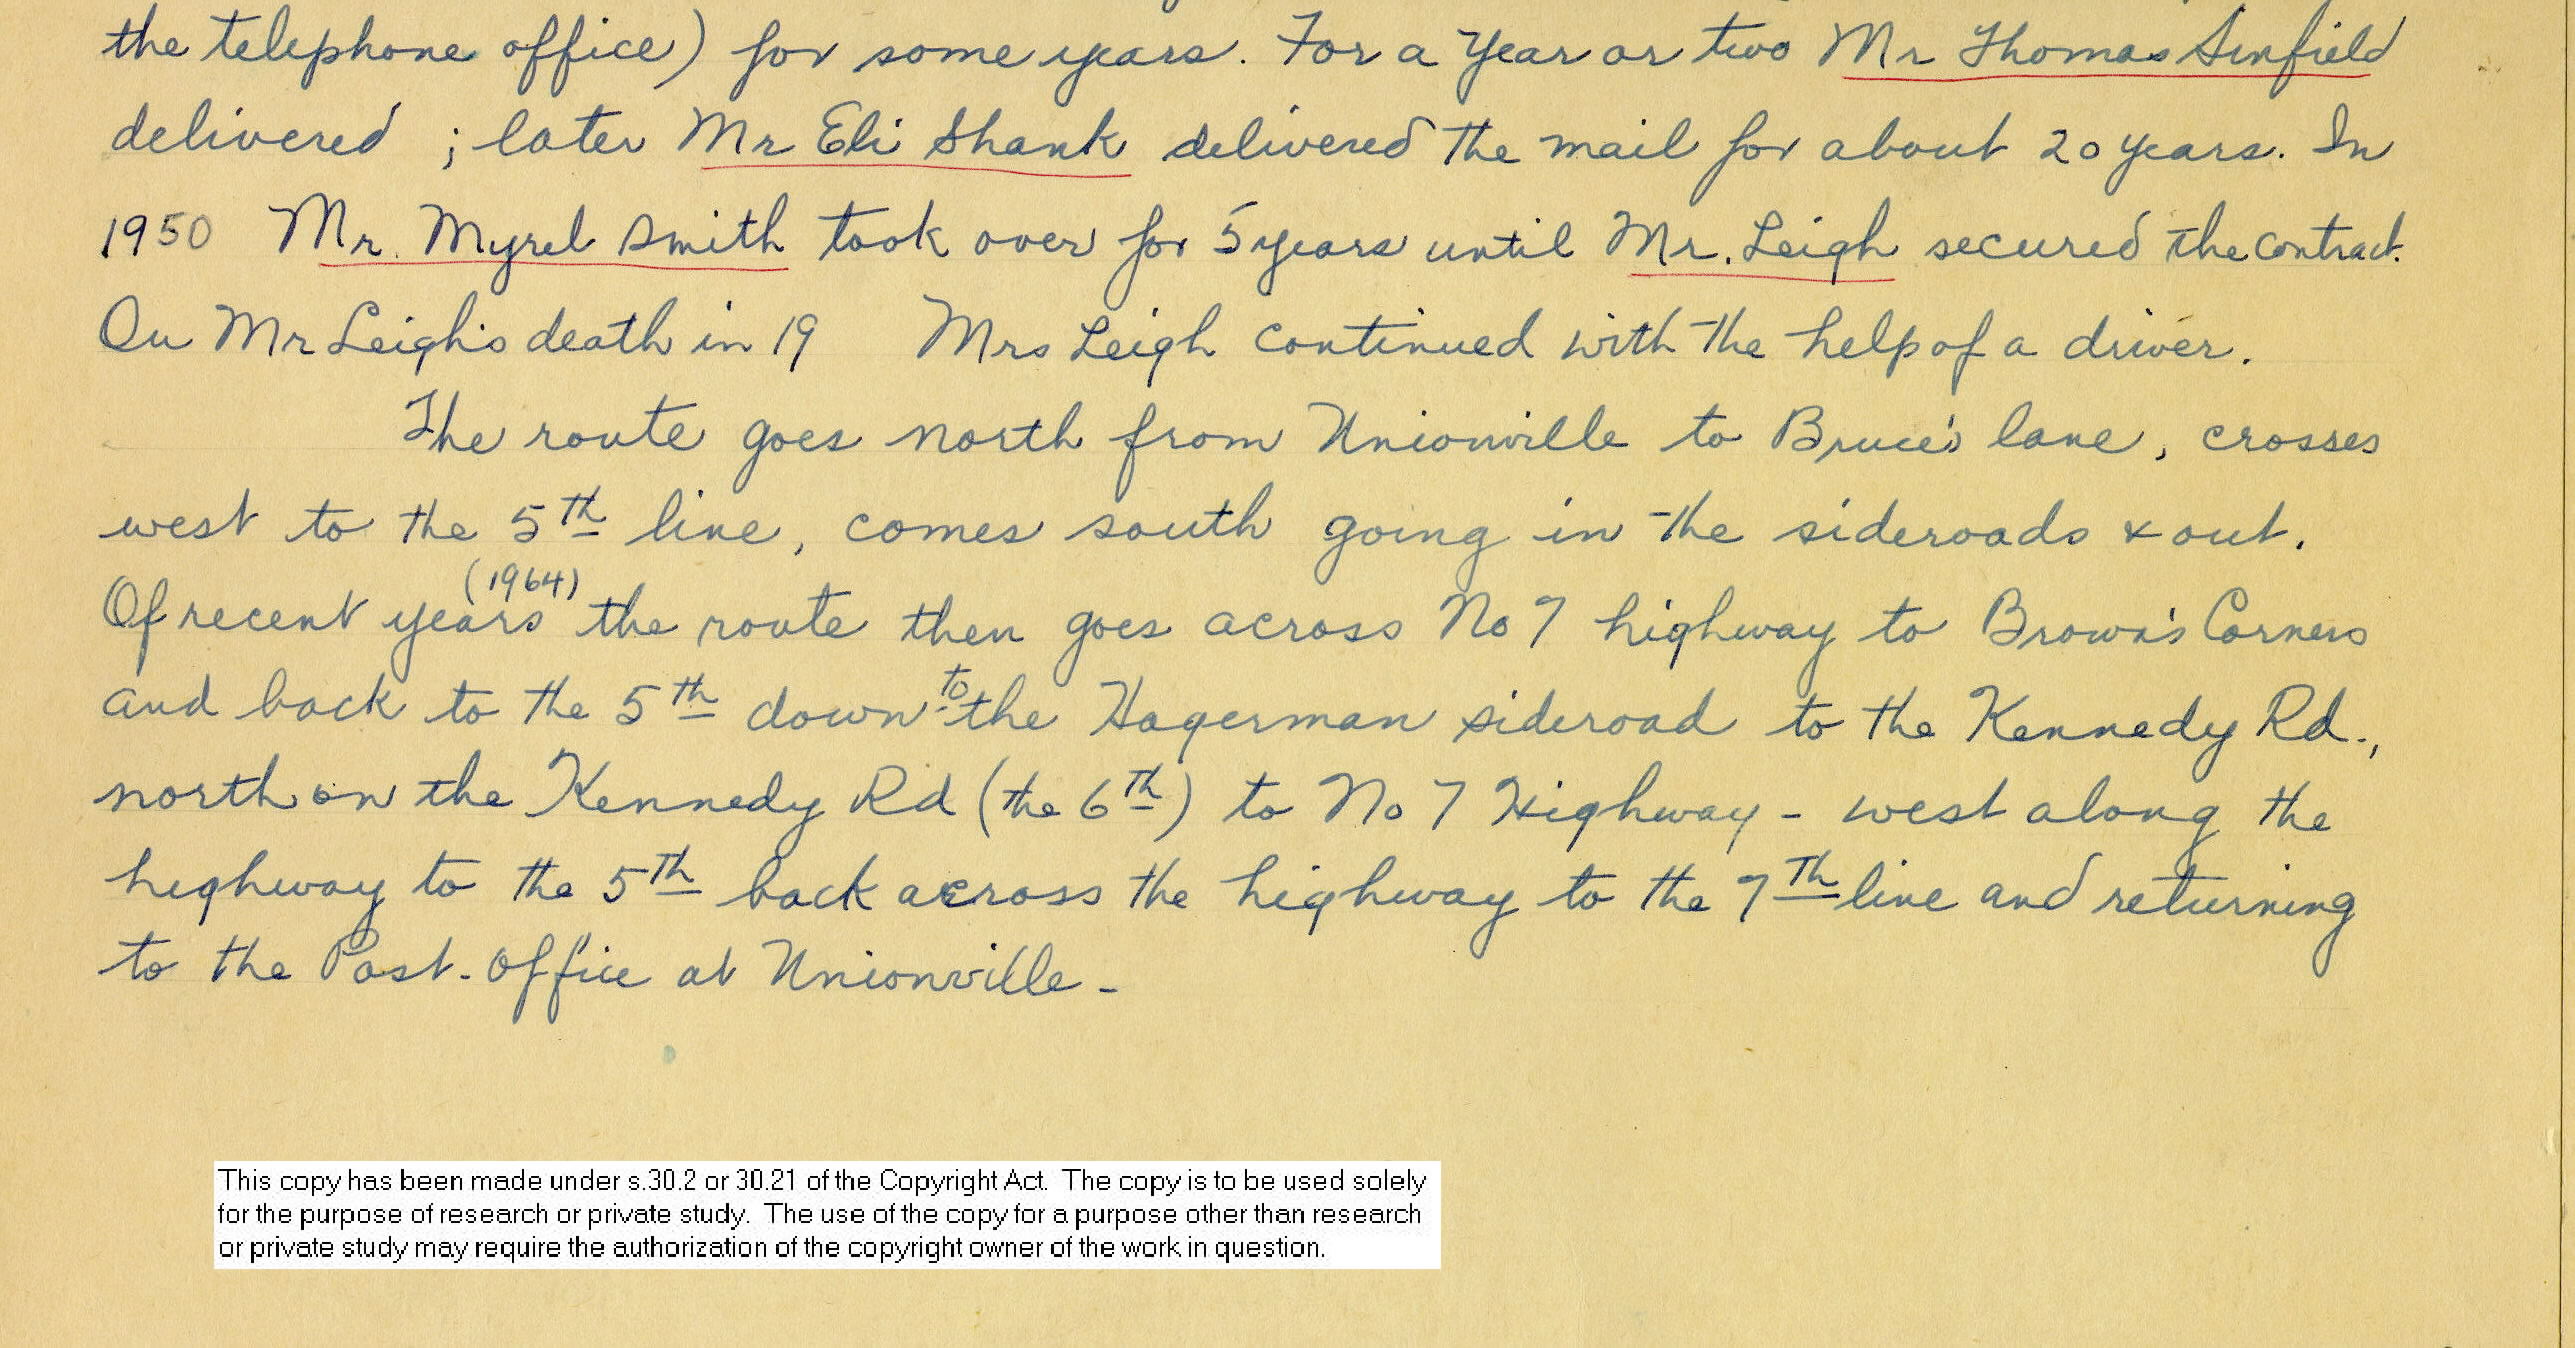 the telephone office) for some years. For a Year or two Mr Thomas Sinfield
delivered ; later Mr Eli Shank delivered the mail for about 20 years. In
1950 Mr. Myrel Smith took over for 5 years until Mr. Leigh secured the contract.
On Mr Leigh's death in 19 Mrs Leigh continued with the help of a driver.
The route goes north from Unionville to Bruce's lane, crosses
west to the 5th line, comes south going in the sideroads & out.
(1964)
Of recent years the route then goes across No 7 highway to Brown's Corners
and back to the 5th down to the Hagerman sideroad to the Kennedy Rd.,
north on the Kennedy Rd (the 6th) to No 7 Highway - west along the
highway to the 5th back across the highway to the 7th line and returning
to the Post-Office at Unionville -
This copy has been made under s.30.2 or 30.21 of the Copyright Act. The copy is to be used solely
for the purpose of research or private study. The use of the copy for a purpose other than research
or private study may require the authorization of the copyright owner of the work in question.